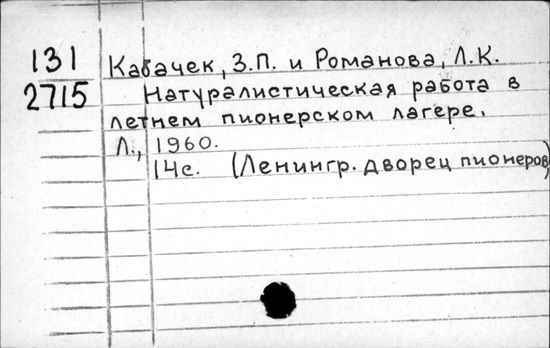 131
2715
Кабачек, З.П. и Романова, Л.К.
Натуралистическая работа в
летнем пионерском лагере.
Л., 1960.
14с. (Ленингр. дворец пионеров)